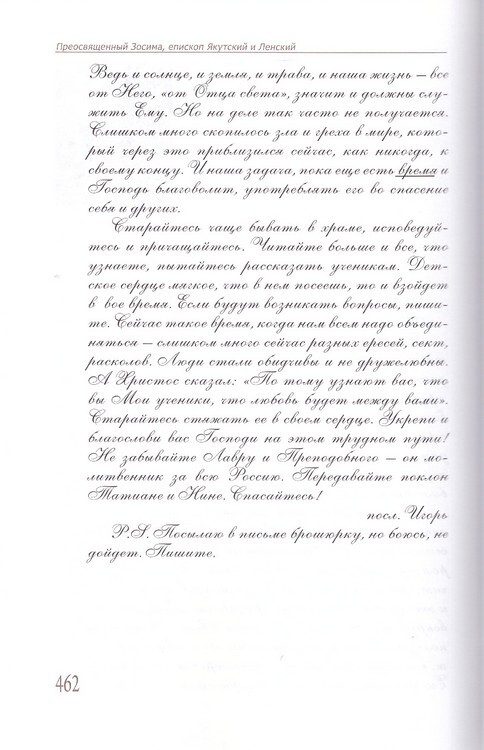 Преосвященный Зосима, епископ Якутский и Ленский
Ведь и солнце, и земля, и трава, и наша жизнь — все
от Него, «от Отца света», значит и должны слу-
жить Ему. Но на деле так часто не получается.
Слишком много скопилось зла и греха в мире, кото-
рый через это приблизился сейчас, как никогда, к
своему концу. И наша задача, пока еще есть время и
Господь благоволит, употреблять его во спасение
себя и других.
Старайтесь чаще бывать в храме, исповедуй-
тесь и причащайтесь. Читайте больше и все, что
узнаете, пытайтесь рассказать ученикам. Дет-
ское сердце мягкое, что в нем посеешь, то и взойдет
в вое время. Если будут возникать вопросы, пиши-
те. Сейчас такое время, когда нам всем надо объеди-
няться — слишком много сейчас разных ересей, сект,
расколов. Люди стали обидчивы и не дружелюбны.
А Христос сказал: «По тому узнают вас, что
вы Мои ученики, что любовь будет между вами».
Старайтесь стяжать ее в своем сердце. Укрепи и
благослови вас Господи на этом трудном пути!
Не забывайте Лавру и Преподобного — он мо-
литвенник за всю Россию. Передавайте поклон
Татиане и Нине. Спасайтесь!
посл. Игорь
P.S. Посылаю в письме брошюрку, но боюсь, не
дойдет. Пишите.
462